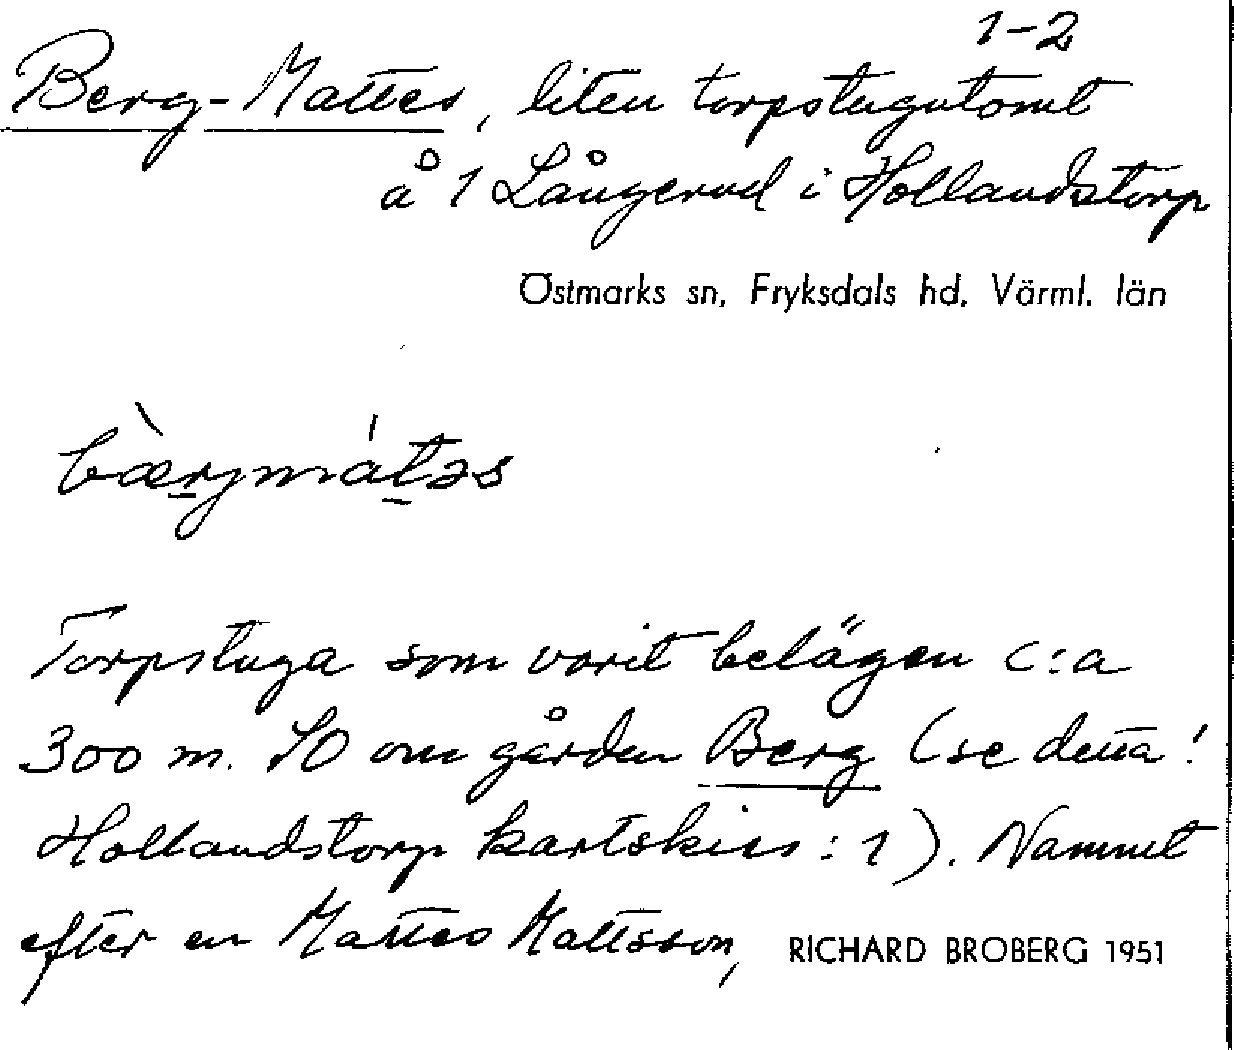 1-2
Berg-Mattes, liten torpstugutomt
å 1 Långerud i Hollandstorp
Östmarks sn, Fryksdals hd. Värml. län
bæ̀rjmátəs
Torpstuga som varit belägen c:a
300 m. SO om gården Berg (se detta!
Hollandstorp kartskiss: 1). Namnet
efter en Mattes Mattsson,
RICHARD BROBERG 1951